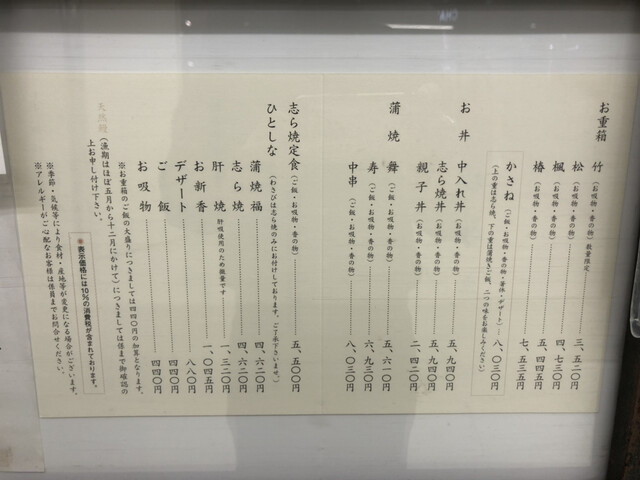 お重箱
竹（お吸物・香の物）数量限定 三、五二〇円
松（お吸物・香の物） 四、七三〇円
楓（お吸物・香の物） 五、四四五円
椿（お吸物・香の物） 七、五三五円
かさね（ご飯・お吸物・香の物・箸休・デザート） 八、〇三〇円
（上の重は志ら焼、下の重は蒲焼きご飯、二つの味をお楽しみください）
お丼
中入れ丼（お吸物・香の物） 五、九四〇円
志ら焼丼（お吸物・香の物） 五、九四〇円
親子丼（お吸物・香の物） 二、四二〇円
蒲焼
舞（ご飯・お吸物・香の物） 五、六一〇円
寿（ご飯・お吸物・香の物） 六、九三〇円
中串（ご飯・お吸物・香の物） 八、〇三〇円
志ら焼定食（ご飯・お吸物・香の物） 五、五〇〇円
（わさびは志ら焼のみにお付けしております。ご了承下さいませ。）
ひとしな
蒲焼福 四、六二〇円
志ら焼 四、六二〇円
肝焼 肝吸使用のため微量です 一、三二〇円
お新香 一、〇四五円
デザート 八八〇円
ご飯 四四〇円
お吸物 四四〇円
※お重箱のご飯の大盛りにつきましては四四〇円の加算となります。
天然鰻（漁期はほぼ五月から十二月にかけて）につきましては係まで御確認の
上お申し付け下さい。
※表示価格には10%の消費税が含まれております。
※季節・気候等により食材・産地等が変更になる場合がございます。
※アレルギーがご心配なお客様は係員までお問合せください。